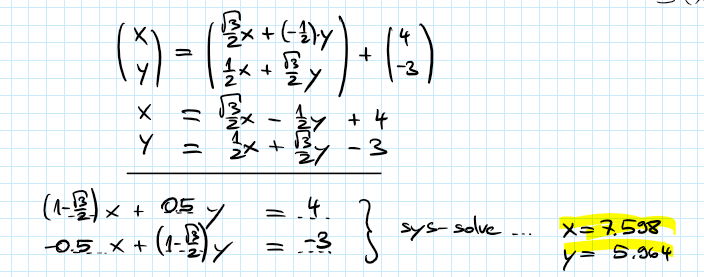 (x y) = (√3/2 x + (-1/2)·y 1/2 x + √3/2 y) + (4 -3)
x = √3/2 x - 1/2 y + 4
y = 1/2 x + √3/2 y - 3
(1-√3/2) x + 0.5 y = 4
-0.5 x + (1-√3/2) y = -3 } sys-solve ... x = 7.598
y = 5.964